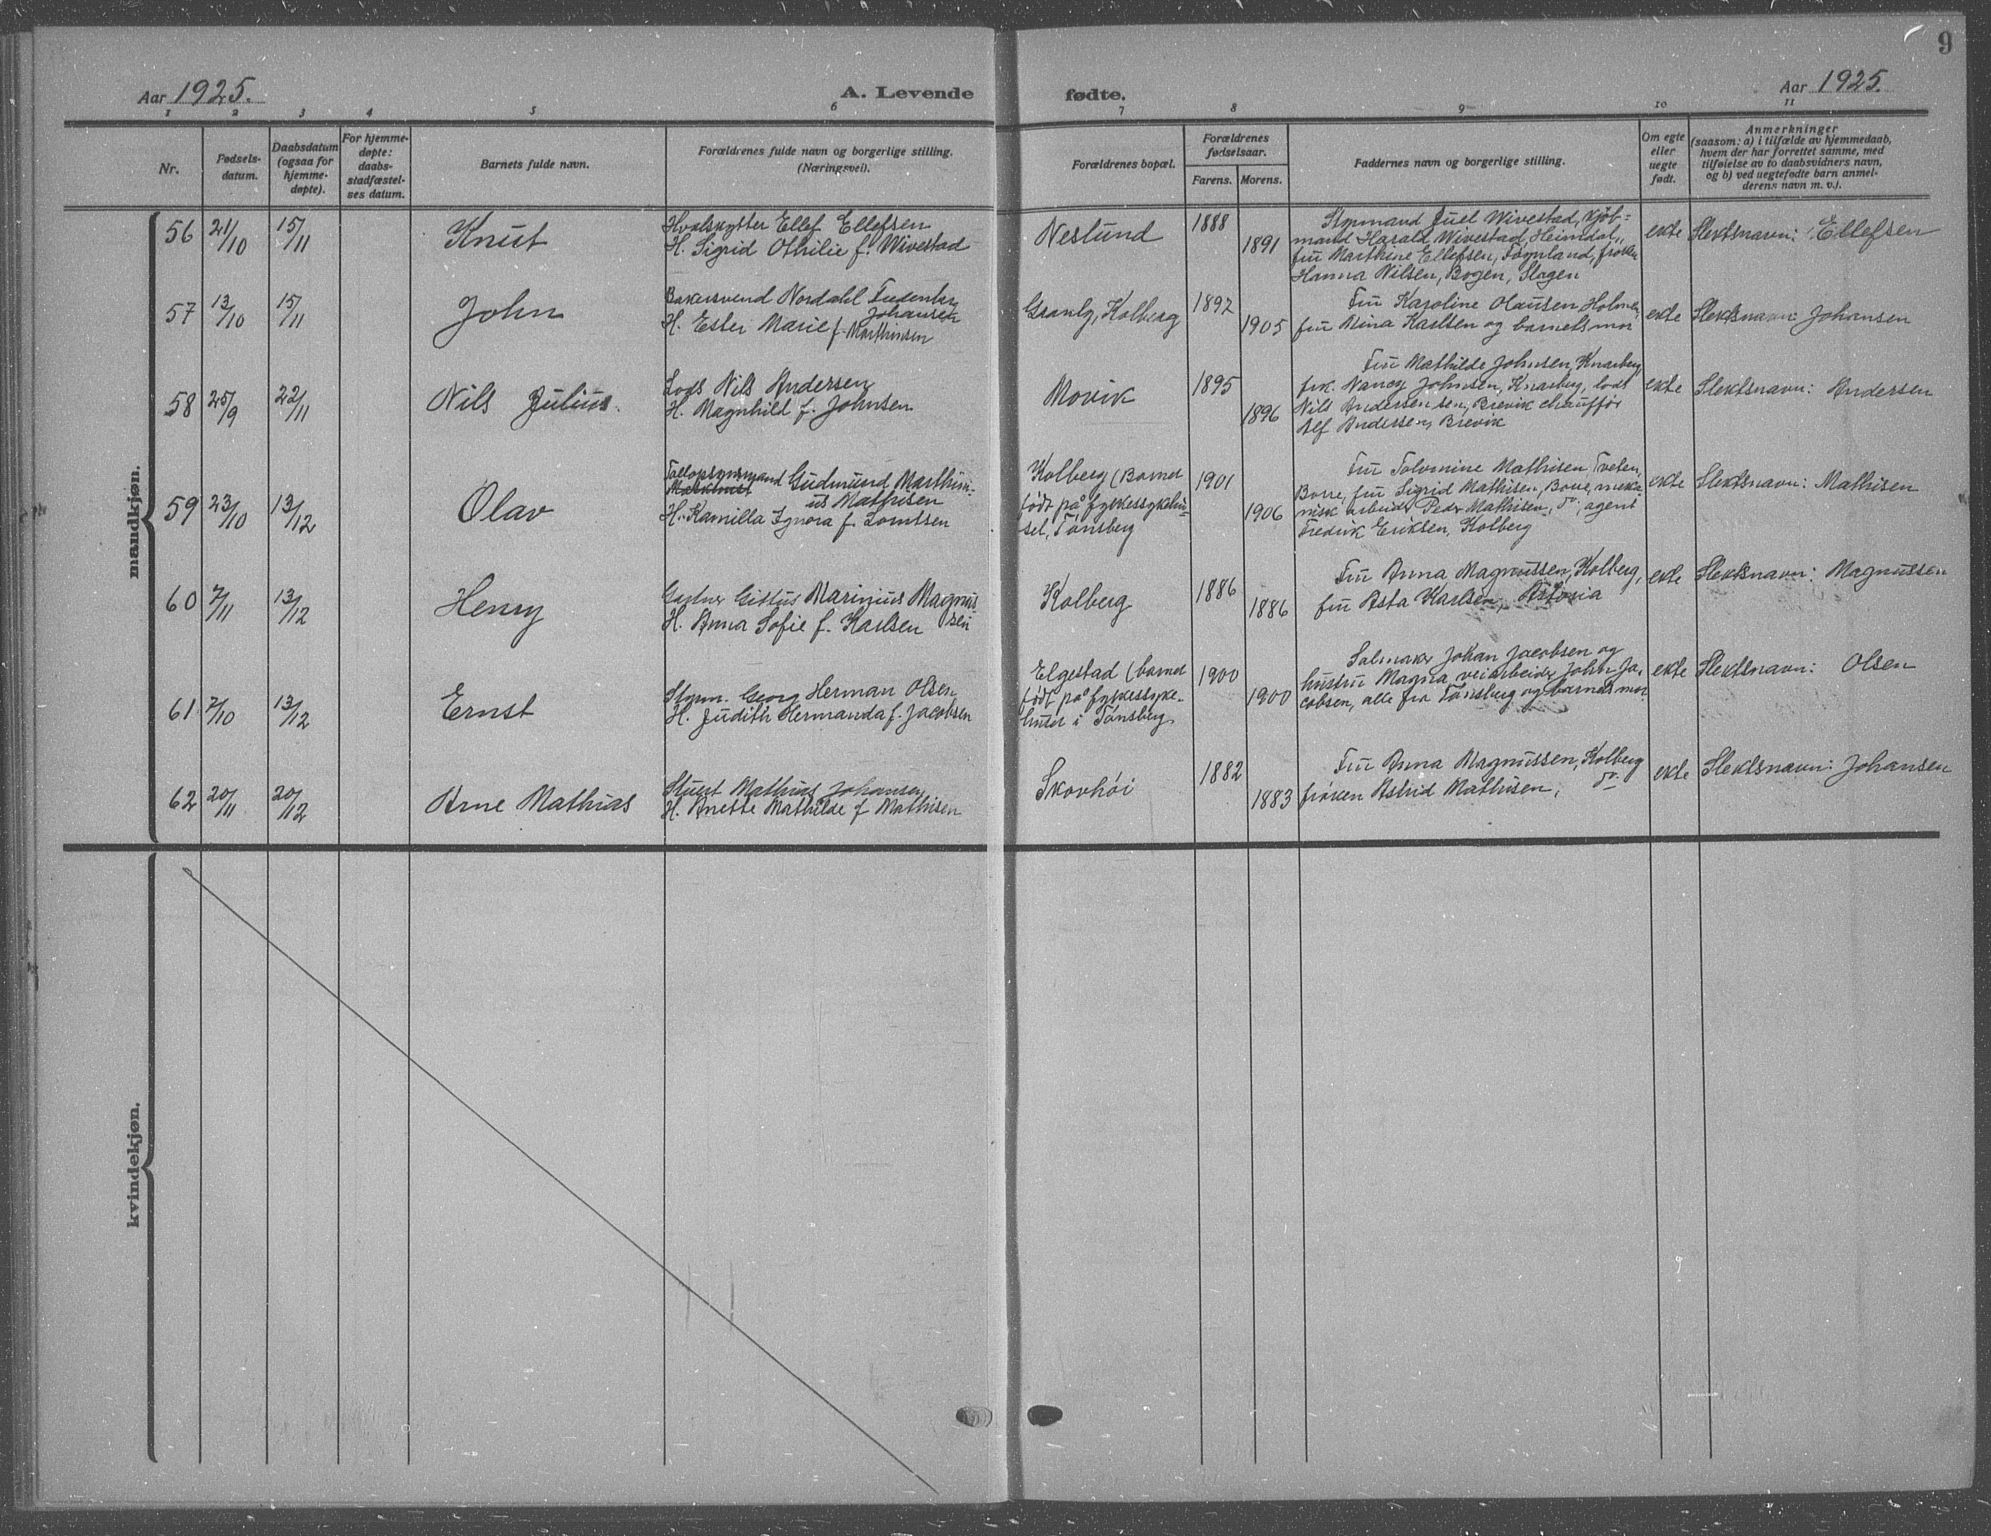 9
Aar 1925.
A. Levende fødte.
Aar 1925.
1 2 3 4 5 6 7 8 9 10 11
Nr.
Fødsels-
datum.
Daabsdatum
(ogsaa for
hjemme-
døpte).
For hjemme-
døpte:
daabs-
stadfæstel-
ses datum.
Barnets fulde navn.
Forældrenes fulde navn og borgerlige stilling.
(Næringsvei).
Forældrenes bopæl.
Forældrenes
fødselsaar.
Farens. Morens.
Faddernes navn og borgerlige stilling.
Om egte
eller
uegte
født.
Anmerkninger
(saasom: a) i tilfælde av hjemmedaab,
hvem der har forrettet samme, med
tilføielse av to daabsvidners navn,
og b) ved uegtefødte barn anmel-
derens navn m. v.).
mandkjøn.
56 21/10 15/11
Knut
Hvalskytter Ellef Ellefsen
H. Sigrid Othilie f. Wivestad
Neslund
1888
1891
Styrmand Juel Wivestad, kjøb-
mand Harald Wivestad, Heimdal,
fru Marthine Ellefsen, frøken
Hanna Nilsen, Bogen, Slagen
ekte
Slektsnavn: Ellefsen
57 13/10 15/11
John
Bakersvend Nordahl
Johansen
H. Ester Marie f. Marthinsen
Granly, Kolberg
1897
1905
Fru Karoline Olausen Holmen,
fru Mina Karlsen og barnets mor
ekte
Slektsnavn: Johansen
58 25/9 22/11
Nils Julius
Lods Nils Andersen
H. Magnhild f. Johnsen
Movik
1895
1896
Fru Mathilde Johnsen, Knarberg
frk. Nancy Johnsen, Knarberg, lods
Nils Andersen sen, Brevik chauffør
Alf Andersen, Brevik
ekte
Slektsnavn: Andersen
59 23/10 13/12
Olav
Gudmund Marthin-
ius Mathisen
H. Kamilla f. Lorntsen
Kolberg (Barnet
født på fylkessykehu-
set, Tønsberg
1901
1906
Fru Tolvmine Mathisen Tveten,
Borre, fru Sigrid Mathisen, Borre, meka-
nisk arbeider Peder Mathisen, agent
Fredrik Eriksen, Kolberg
ekte
Slektsnavn: Mathisen
60 7/11 13/12
Henry
Gartner Marinius Magnus-
sen
H. Anna Sofie f. Karlsen
Kolberg
1886
1886
Fru Anna Magnussen, Kolberg,
fru Asta Karlsen,
ekte
Slektsnavn: Magnussen
61 7/10 13/12
Ernst
Styrm. Georg Herman Olsen
H. Judith Hermanda f. Jacobsen
Elgestad (barnet
født på fylkessyke-
huset i Tønsberg.
1900
1900
Salmaker Johan Jacobsen og
hustru Magna veiarbeider John Ja-
cobsen, alle fra Tønsberg og barnets mor
ekte
Slektsnavn: Olsen
62 20/11 20/12
Arne Mathias
Stuert Mathias Johansen
H. Anette Mathilde f Mathisen
Skovhøi
1882
1883
Fru Anna Magnussen, Kolberg
frøken Astrid Mathisen,
ekte
Slektsnavn: Johansen
kvindekjøn.